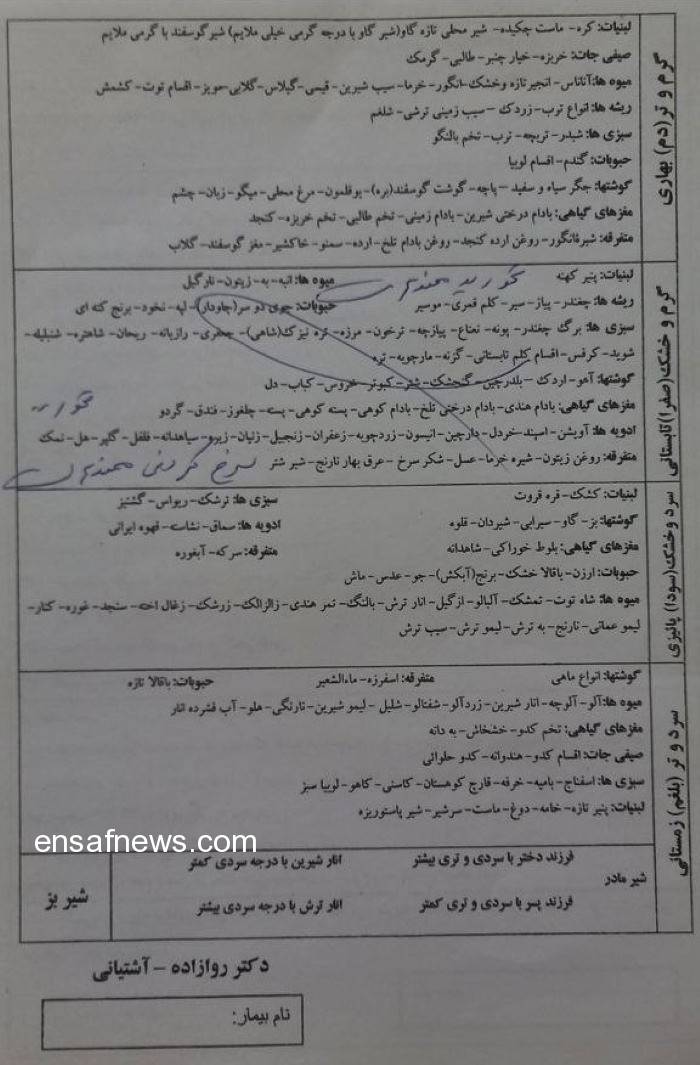 گرم و تر(دم) بهاری
لبنیات: کره- ماست چکیده- شیر محلی تازه گاو(شیر گاو با درجه گرمی خیلی ملایم) شیر گوسفند با گرمی ملایم
صیفی جات: خربزه- خیار چنبر- طالبی- گرمک
میوه ها:آناناس- انجیرتازه وخشک-انگور- خرما- سیب شیرین- قیسی-گیلاس-گلابی-مویز- اقسام توت- کشمش
ریشه ها: انواع ترب- زردک – سیب زمینی ترشی- شلغم
سبزی ها: شبدر- تربچه- ترب- تخم بالنگو
حبوبات: گندم- اقسام لوبیا
گوشتها: جگر سیاه و سفید – پاچه- گوشت گوسفند(بره)- بوقلمون- مرغ محلی- میگو- زبان- چشم
مغزهای گیاهی: بادام درختی شیرین- بادام زمینی- تخم طالبی- تخم خربزه- کنجد
متفرقه: شیره‌انگور- روغن ارده کنجد- روغن بادام تلخ- ارده- سمنو- خاکشیر- مغز گوسفند- گلاب
گرم و خشک(صفرا)تابستانی
لبنیات: پنیر کهنه
میوه ها: انبه- به- زیتون- نارگیل
ریشه ها: چغندر- پیاز- سیر- کلم قمری- موسیر
حبوبات: جوی دو سر(جاودار)- لپه- نخود- برنج کته ای
سبزی ها: برگ چغندر- پونه- نعناع- پیازچه- ترخون- مرزه- تره تیزک(شاهی)- جعفری- رازیانه- ریحان- شاهتره- شنبلیله-
شوید- کرفس- اقسام کلم تابستانی- گزنه- مارچوبه- تره
گوشتها: آهو- اردک- بلدرچین- گنجشک- شتر- کبوتر- خروس- کباب- دل
مغزهای گیاهی: بادام هندی- بادام درختی تلخ- بادام کوهی- پسته کوهی- پسته- چلغوز- فندق- گردو
ادویه ها: آویشن- اسپند- خردل- دارچین- انیسون- زردچوبه- زعفران- زنجبیل- زنیان- زیره- سیاهدانه- فلفل- گلپر- هل- نمک
متفرقه: روغن زیتون- شیره خرما- عسل- شکر سرخ- عرق بهار نارنج- شیر شتر
سرد وخشک(سودا) پائیزی
لبنیات: کشک- قره قروت
سبزی ها: ترشک- ریواس- گشنیز
گوشتها: بز- گاو- سیرابی- شیردان- قلوه
ادویه ها: سماق- نشاسته- قهوه ایرانی
مغزهای گیاهی: بلوط خوراکی- شاهدانه
متفرقه: سرکه- آبغوره
حبوبات: ارزن- باقالا خشک- برنج(آبکش)- جو- عدس- ماش
میوه ها: شاه توت- تمشک- آلبالو- ازگیل- انار ترش- بالنگ- تمر هندی- زالزالک- زرشک- زغال اخته- سنجد- غوره- کنار-
لیمو عمانی- نارنج- به ترش- لیمو ترش- سیب ترش
سرد و تر (بلغم) زمستانی
گوشتها: انواع ماهی
متفرقه: اسفرزه- ماءالشعیر
حبوبات: باقالا تازه
میوه ها:آلو- آلوچه- انار شیرین- زردآلو- شفتالو- شلیل - لیمو شیرین- نارنگی- هلو- آب فشرده انار
مغزهای گیاهی: تخم کدو- خشخاش- به دانه
صیفی جات: اقسام کدو- هندوانه- کدو حلوائی
سبزی ها: اسفناج- بامیه- خرفه- قارچ کوهستان- کاسنی- کاهو- لوبیا سبز
لبنیات: پنیر تازه- خامه- دوغ- ماست- سرشیر- شیر پاستوریزه
ensafnews.com
شیر مادر
فرزند دختر با سردی و تری بیشتر
فرزند پسر با سردی و تری کمتر
انار شیرین با درجه سردی کمتر
انار ترش با درجه سردی بیشتر
شیر بز
دکتر روازاده – آشتیانی
نام بیمار: